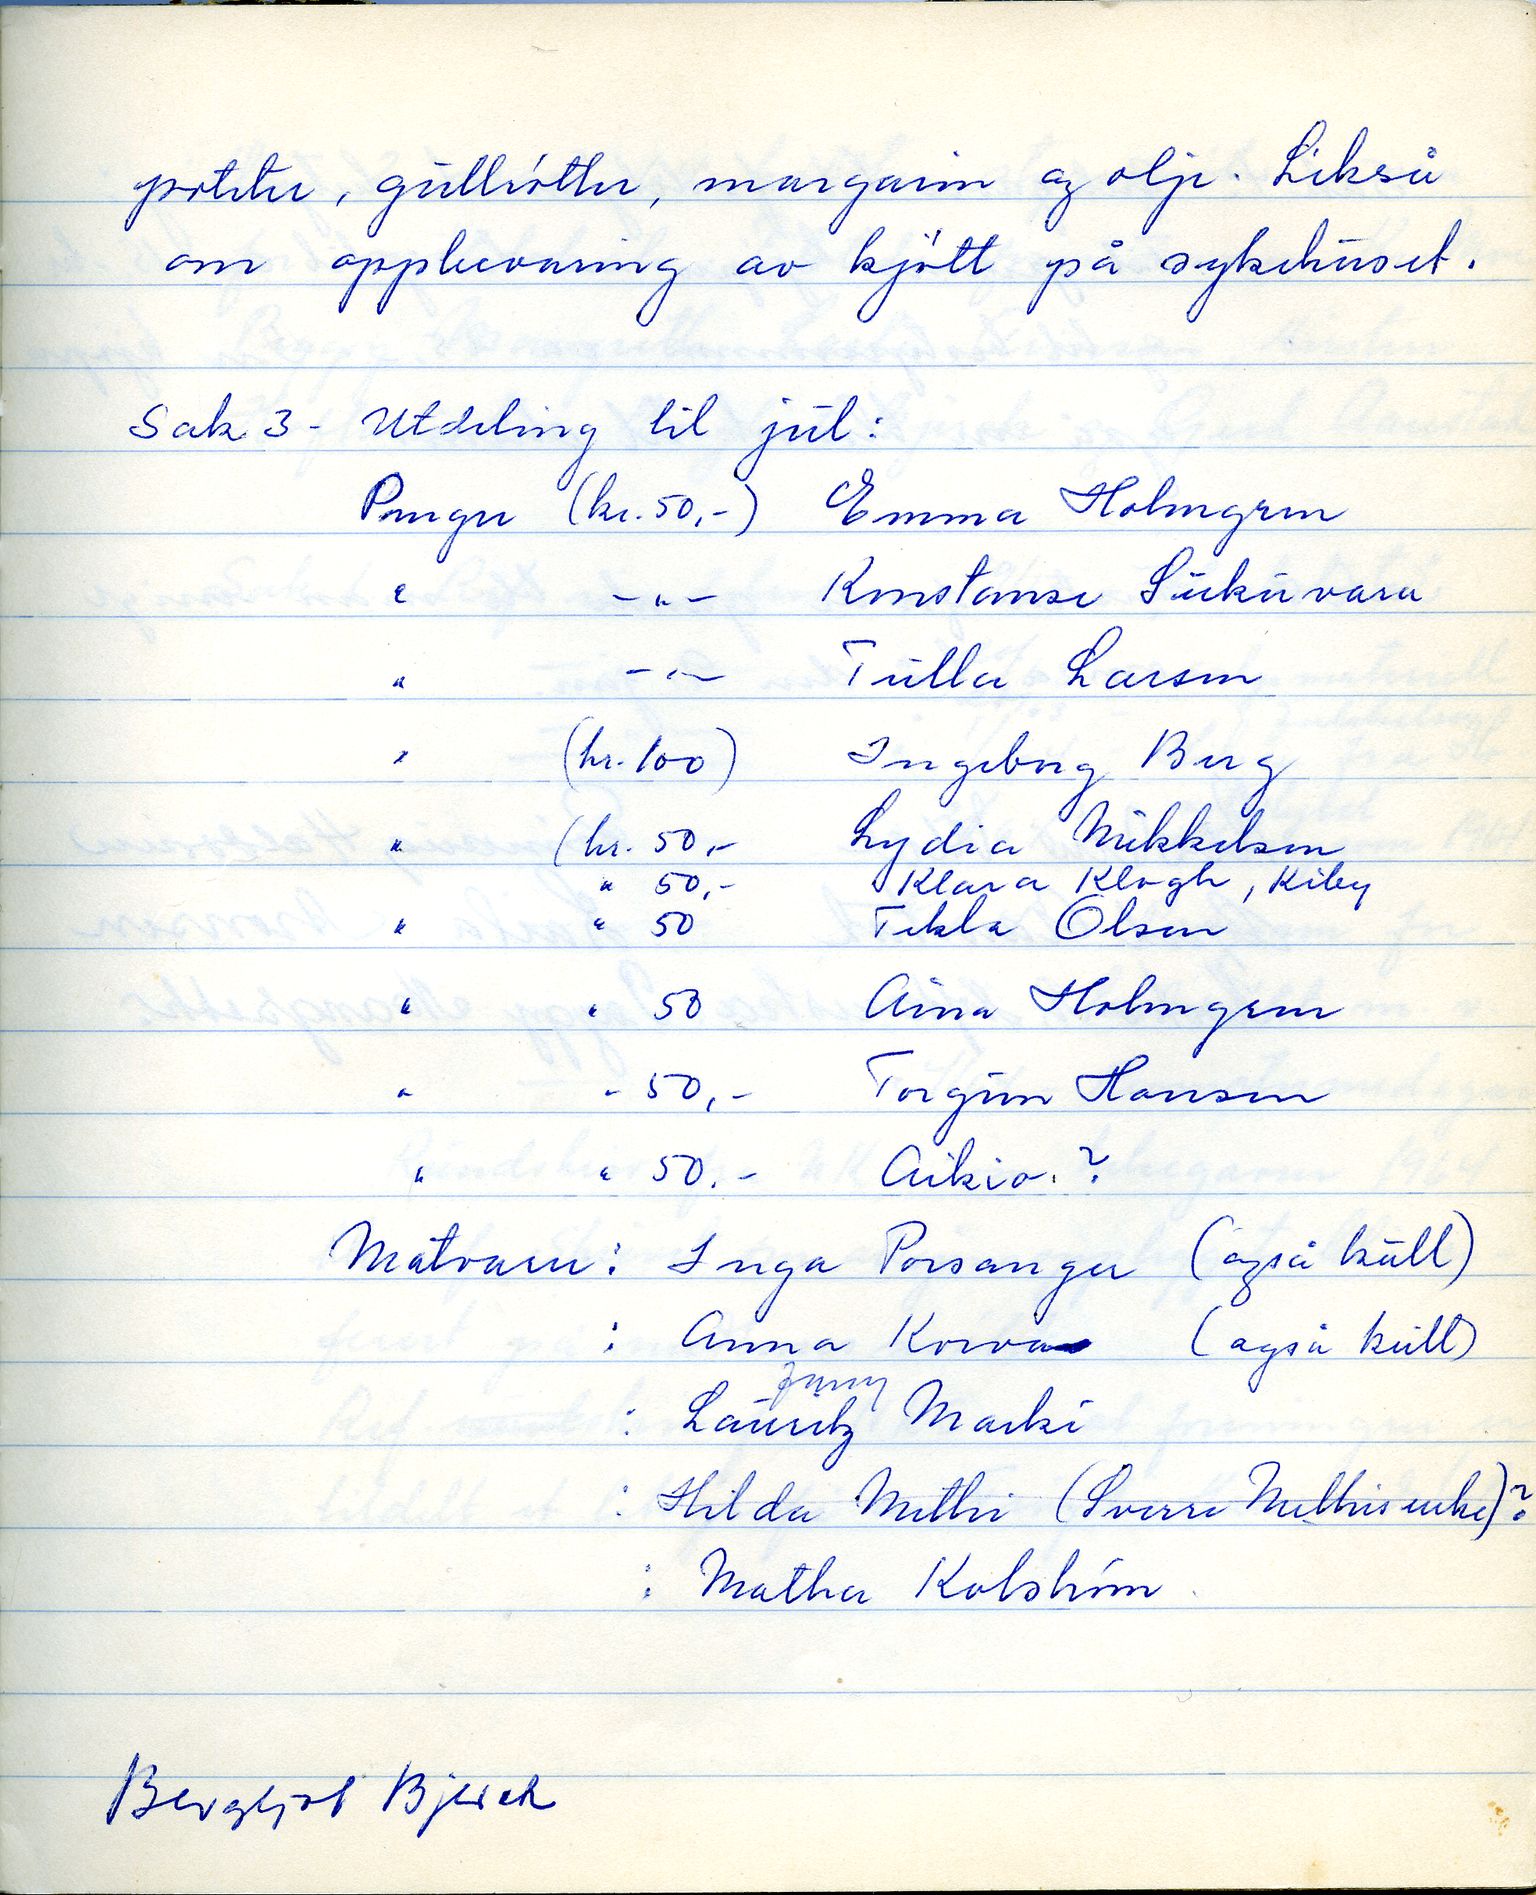 poteter, gullrøtter, margarin og olje. Likså
om oppbevaring av kjøtt på sykehuset.
Sak 3 - Utdeling til jul:
Penger (kr. 50,-) Emma Holmgren
" -"- Konstanse Siikavara
" -"- Tulla Larsen
" (kr. 100) Ingeborg Berg
" (kr. 50,- Lydia Mikkelsen
" 50,- Klara Klogh, Kiby
" " 50 Tekla Olsen
" " 50 Aina Holmgren
" " 50,- Torgun Hansen
" " 50.- Aikio.?
Matvarer: Inga Porsanger (også kull)
: Anna Korva (også kull)
Jenny
: Lauritz Marki
: Hilda Methi (Sverre Methis enke)?
: Mathea Kolstrøm
Bergljot Bjerck